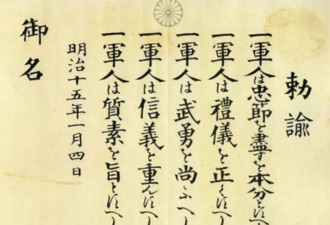 勅諭
一軍人は忠節を盡すを本分とすへし
一軍人は禮儀を正くすへし
一軍人は武勇を尚ふへし
一軍人は信義を重んすへし
一軍人は質素を旨とすへし
明治十五年一月四日
御名